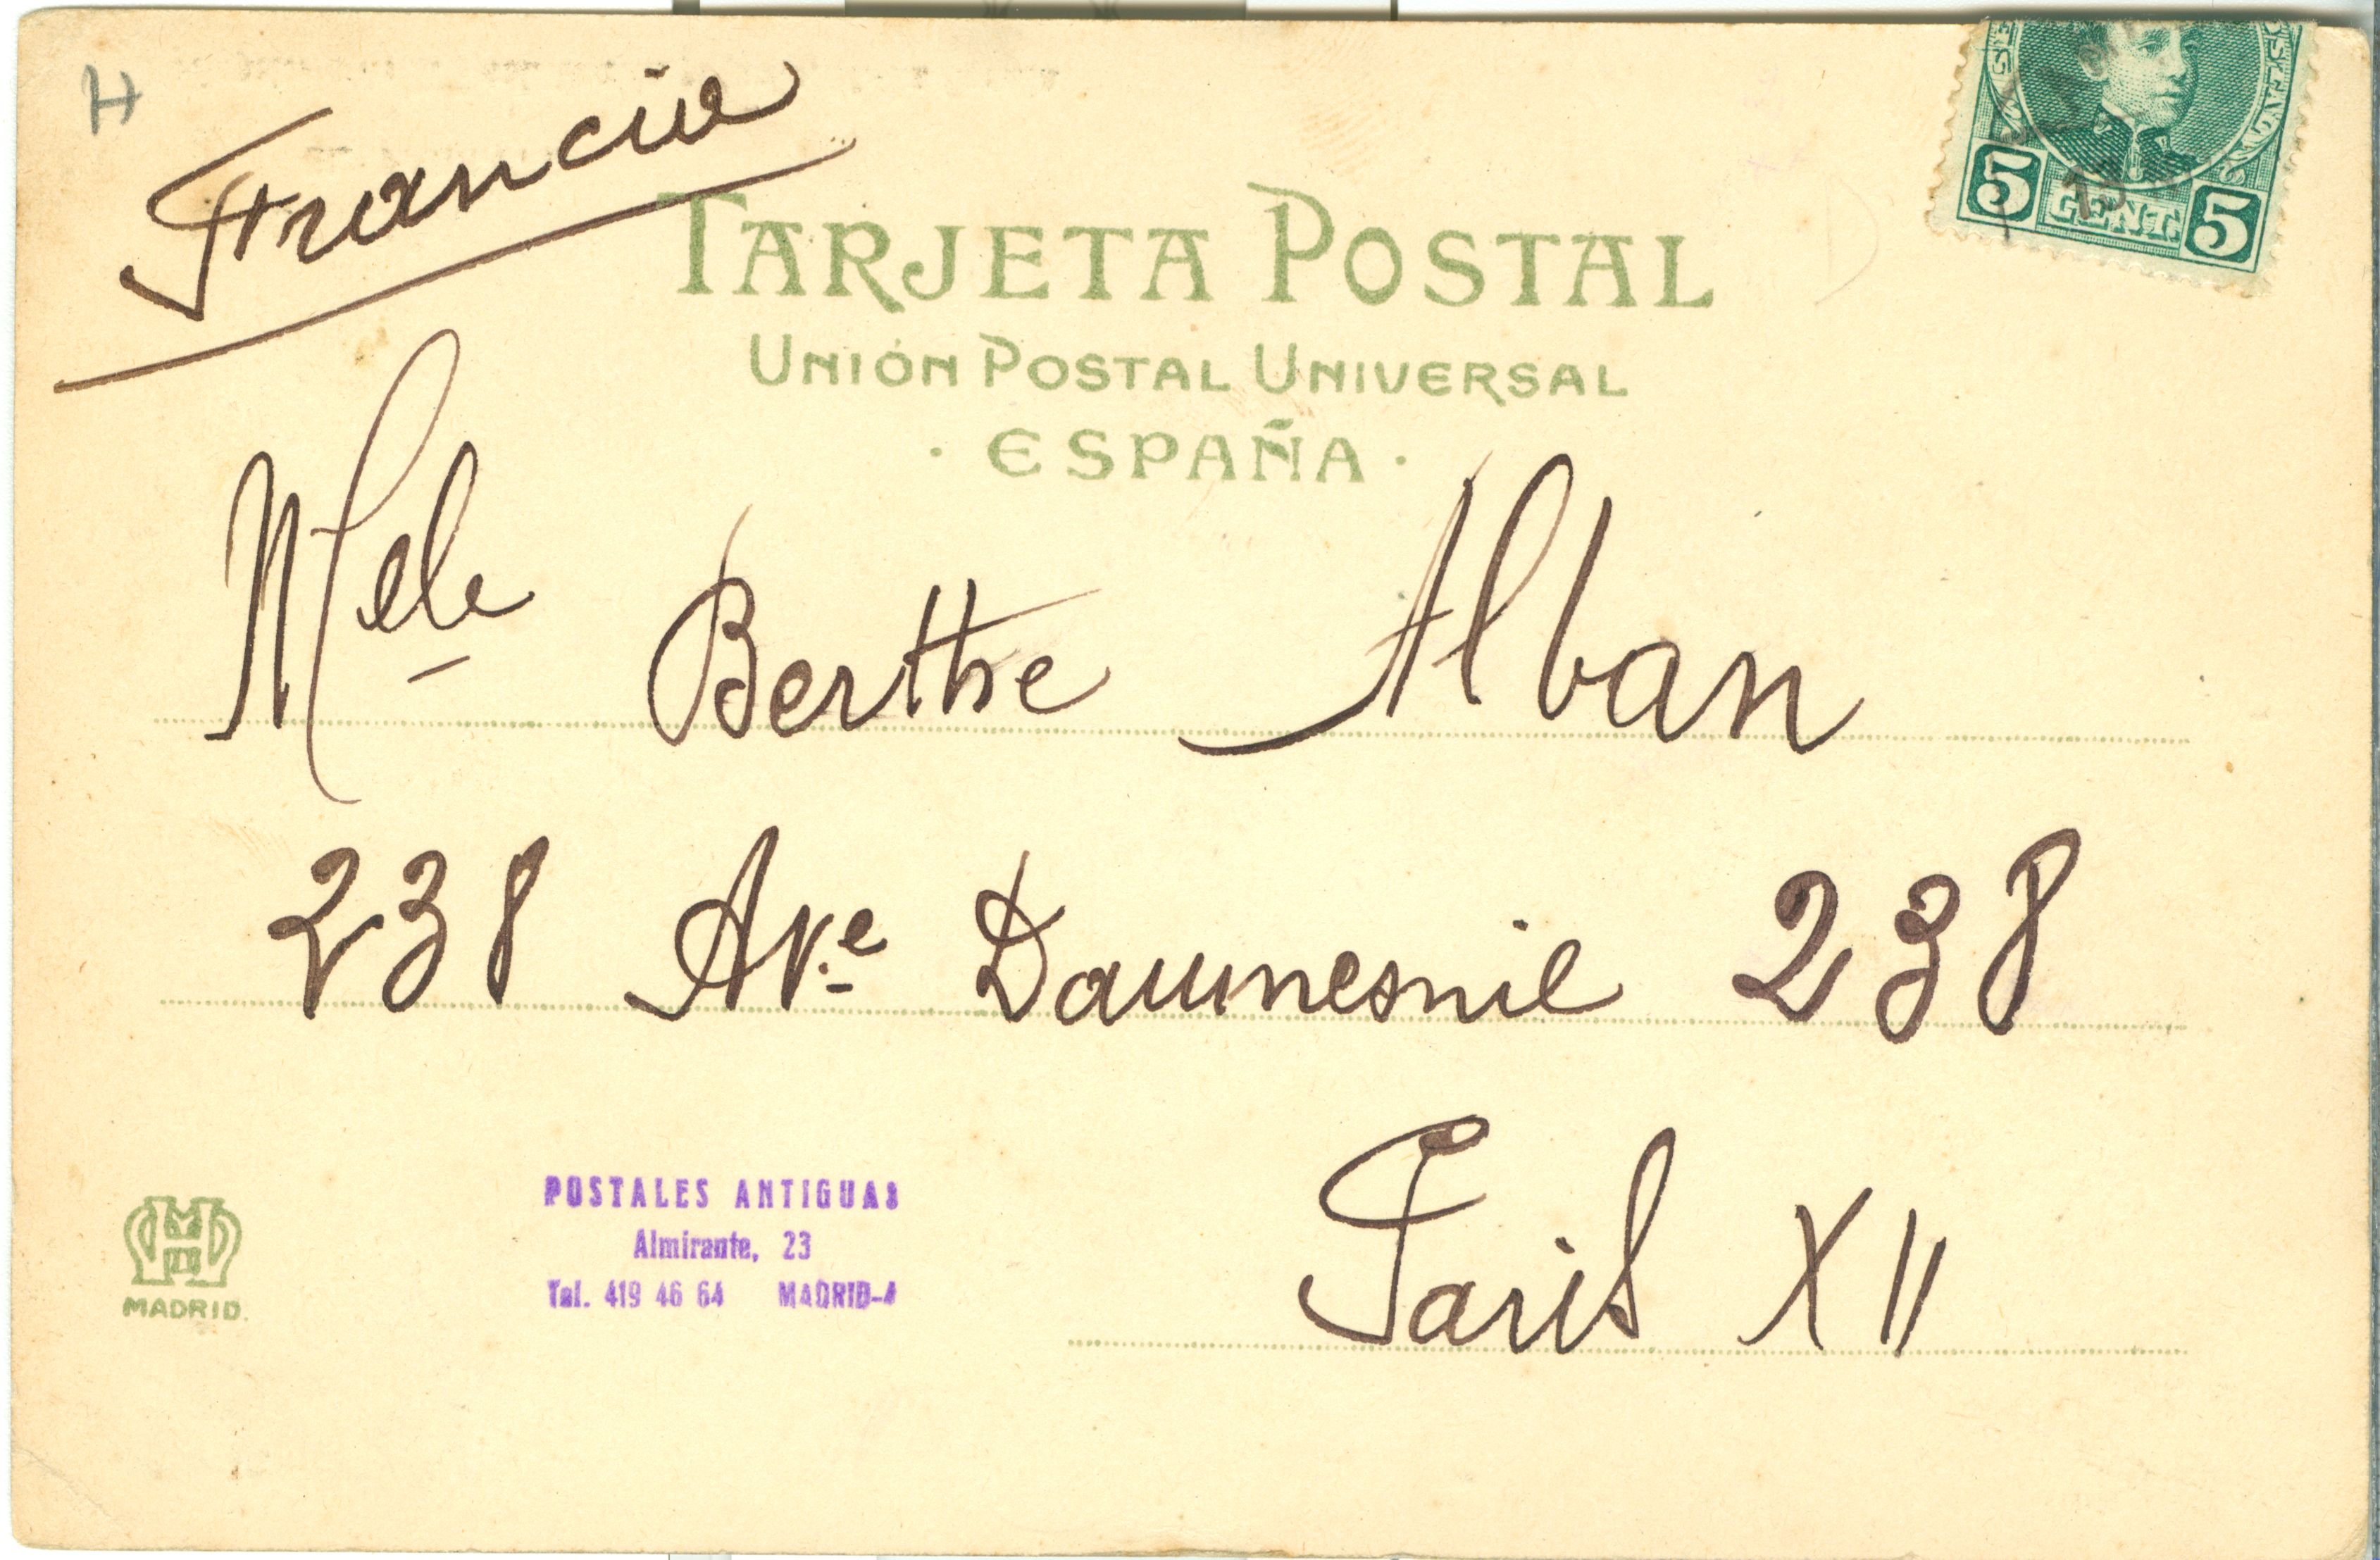 H
Francia
TARJETA POSTAL
UNIÓN POSTAL UNIVERSAL
· ESPAÑA ·
5 CENT. 5
Melle Berthe Alban
238 Ave Daumesnil 238
Paris XII
POSTALES ANTIGUAS
Almirante, 23
Tel. 419 46 64 MADRID-4
MADRID.